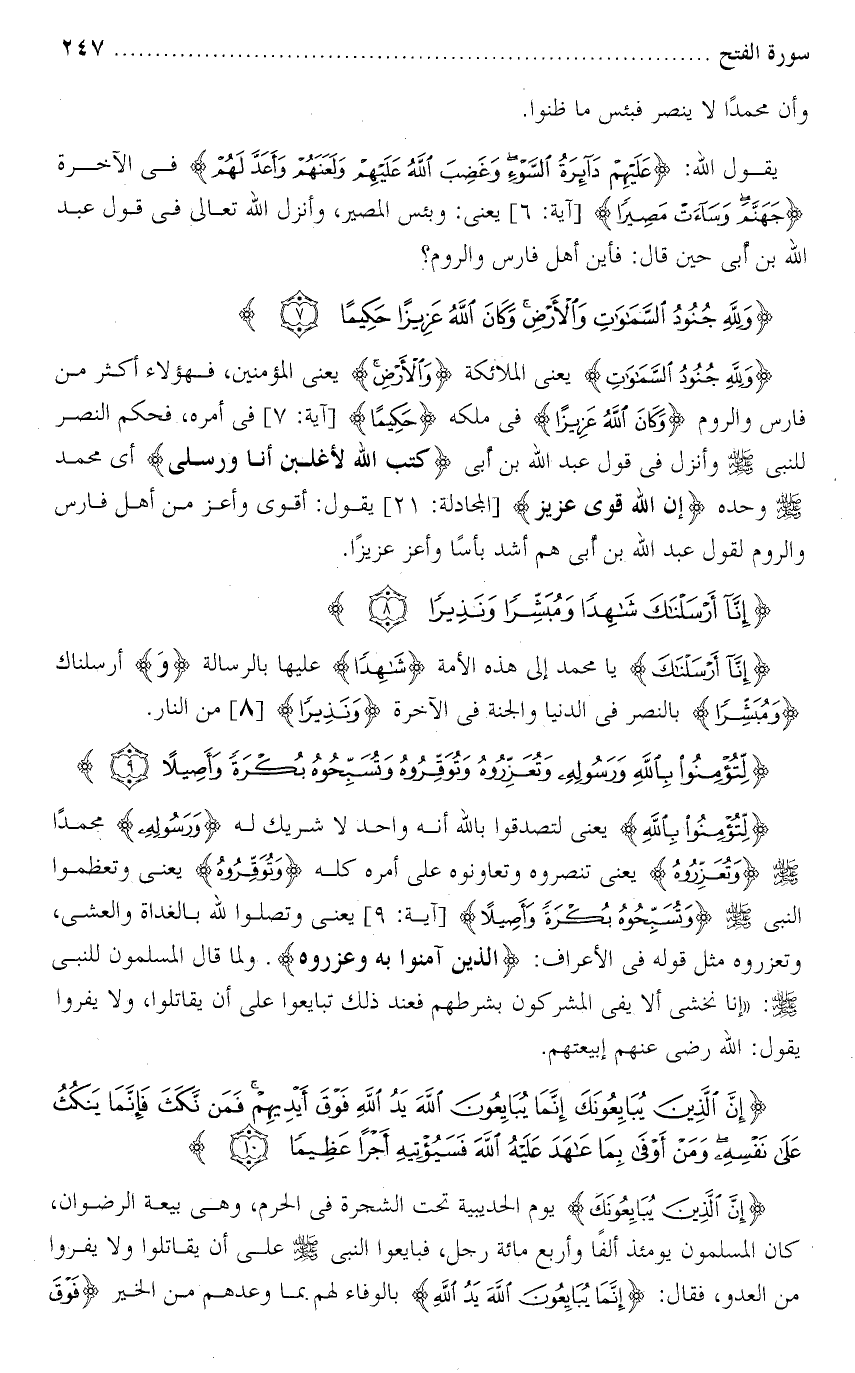 سورة الفتح ........................................................................ ٢٤٧
وأن محمدًا لا ينصر فبئس ما ظنوا.
يقول الله: ﴿عَلَيْهِمْ دَآئِرَةُ السَّوْءِ وَغَضِبَ ٱللَّهُ عَلَيْهِمْ وَلَعَنَهُمْ وَأَعَدَّ لَهُمْ﴾ فى الآخرة
﴿جَهَنَّمَ وَسَآءَتْ مَصِيرًا﴾ [آية: ٦] يعنى: وبئس المصير، وأنزل الله تعالى فى قول عبد
الله بن أبى حين قال: فأين أهل فارس والروم؟
﴿وَلِلَّهِ جُنُودُ السَّمَٰوَٰتِ وَٱلْأَرْضِ وَكَانَ ٱللَّهُ عَزِيزًا حَكِيمًا ٧﴾
﴿وَلِلَّهِ جُنُودُ السَّمَٰوَٰتِ﴾ يعنى الملائكة ﴿وَٱلْأَرْضِ﴾ يعنى المؤمنين، فهؤلاء أكثر من
فارس والروم ﴿وَكَانَ ٱللَّهُ عَزِيزًا﴾ فى ملكه ﴿حَكِيمًا﴾ [آية: ٧] فى أمره، فحكم النصر
للنبى ﷺ وأنزل فى قول عبد الله بن أبى ﴿كتب الله لأغلبن أنا ورسلى﴾ أى محمد
ﷺ وحده ﴿إن الله قوى عزيز﴾ [المجادلة: ٢١] يقول: أقوى وأعز من أهل فارس
والروم لقول عبد الله بن أبى هم أشد بأسًا وأعز عزيزًا.
﴿إِنَّآ أَرْسَلْنَٰكَ شَٰهِدًا وَمُبَشِّرًا وَنَذِيرًا ٨﴾
﴿إِنَّآ أَرْسَلْنَٰكَ﴾ يا محمد إلى هذه الأمة ﴿شَٰهِدًا﴾ عليها بالرسالة ﴿وَ﴾ أرسلناك
﴿وَمُبَشِّرًا﴾ بالنصر فى الدنيا والجنة فى الآخرة ﴿وَنَذِيرًا﴾ [٨] من النار.
﴿لِّتُؤْمِنُوا۟ بِٱللَّهِ وَرَسُولِهِۦ وَتُعَزِّرُوهُ وَتُوَقِّرُوهُ وَتُسَبِّحُوهُ بُكْرَةً وَأَصِيلًا ٩﴾
﴿لِّتُؤْمِنُوا۟ بِٱللَّهِ﴾ يعنى لتصدقوا بالله أنه واحد لا شريك له ﴿وَرَسُولِهِۦ﴾ محمدًا
ﷺ ﴿وَتُعَزِّرُوهُ﴾ يعنى تنصروه وتعاونوه على أمره كله ﴿وَتُوَقِّرُوهُ﴾ يعنى وتعظموا
النبى ﷺ ﴿وَتُسَبِّحُوهُ بُكْرَةً وَأَصِيلًا﴾ [آية: ٩] يعنى وتصلوا لله بالغداة والعشى،
وتعزروه مثل قوله فى الأعراف: ﴿الذين آمنوا به وعزروه﴾. ولما قال المسلمون للنبى
ﷺ: «إنا نخشى ألا يفى المشركون بشرطهم فعند ذلك تبايعوا على أن يقاتلوا، ولا يفروا
يقول: الله رضى عنهم إبيعتهم.
﴿إِنَّ ٱلَّذِينَ يُبَايِعُونَكَ إِنَّمَا يُبَايِعُونَ ٱللَّهَ يَدُ ٱللَّهِ فَوْقَ أَيْدِيهِمْ فَمَن نَّكَثَ فَإِنَّمَا يَنكُثُ
عَلَىٰ نَفْسِهِۦ وَمَنْ أَوْفَىٰ بِمَا عَٰهَدَ عَلَيْهُ ٱللَّهَ فَسَيُؤْتِيهِ أَجْرًا عَظِيمًا ١٠﴾
﴿إِنَّ ٱلَّذِينَ يُبَايِعُونَكَ﴾ يوم الحديبية تحت الشجرة فى الحرم، وهى بيعة الرضوان،
كان المسلمون يومئذ ألفًا وأربع مائة رجل، فبايعوا النبى ﷺ على أن يقاتلوا ولا يفروا
من العدو، فقال: ﴿إِنَّمَا يُبَايِعُونَ ٱللَّهَ يَدُ ٱللَّهِ﴾ بالوفاء لهم بما وعدهم من الخير ﴿فَوْقَ